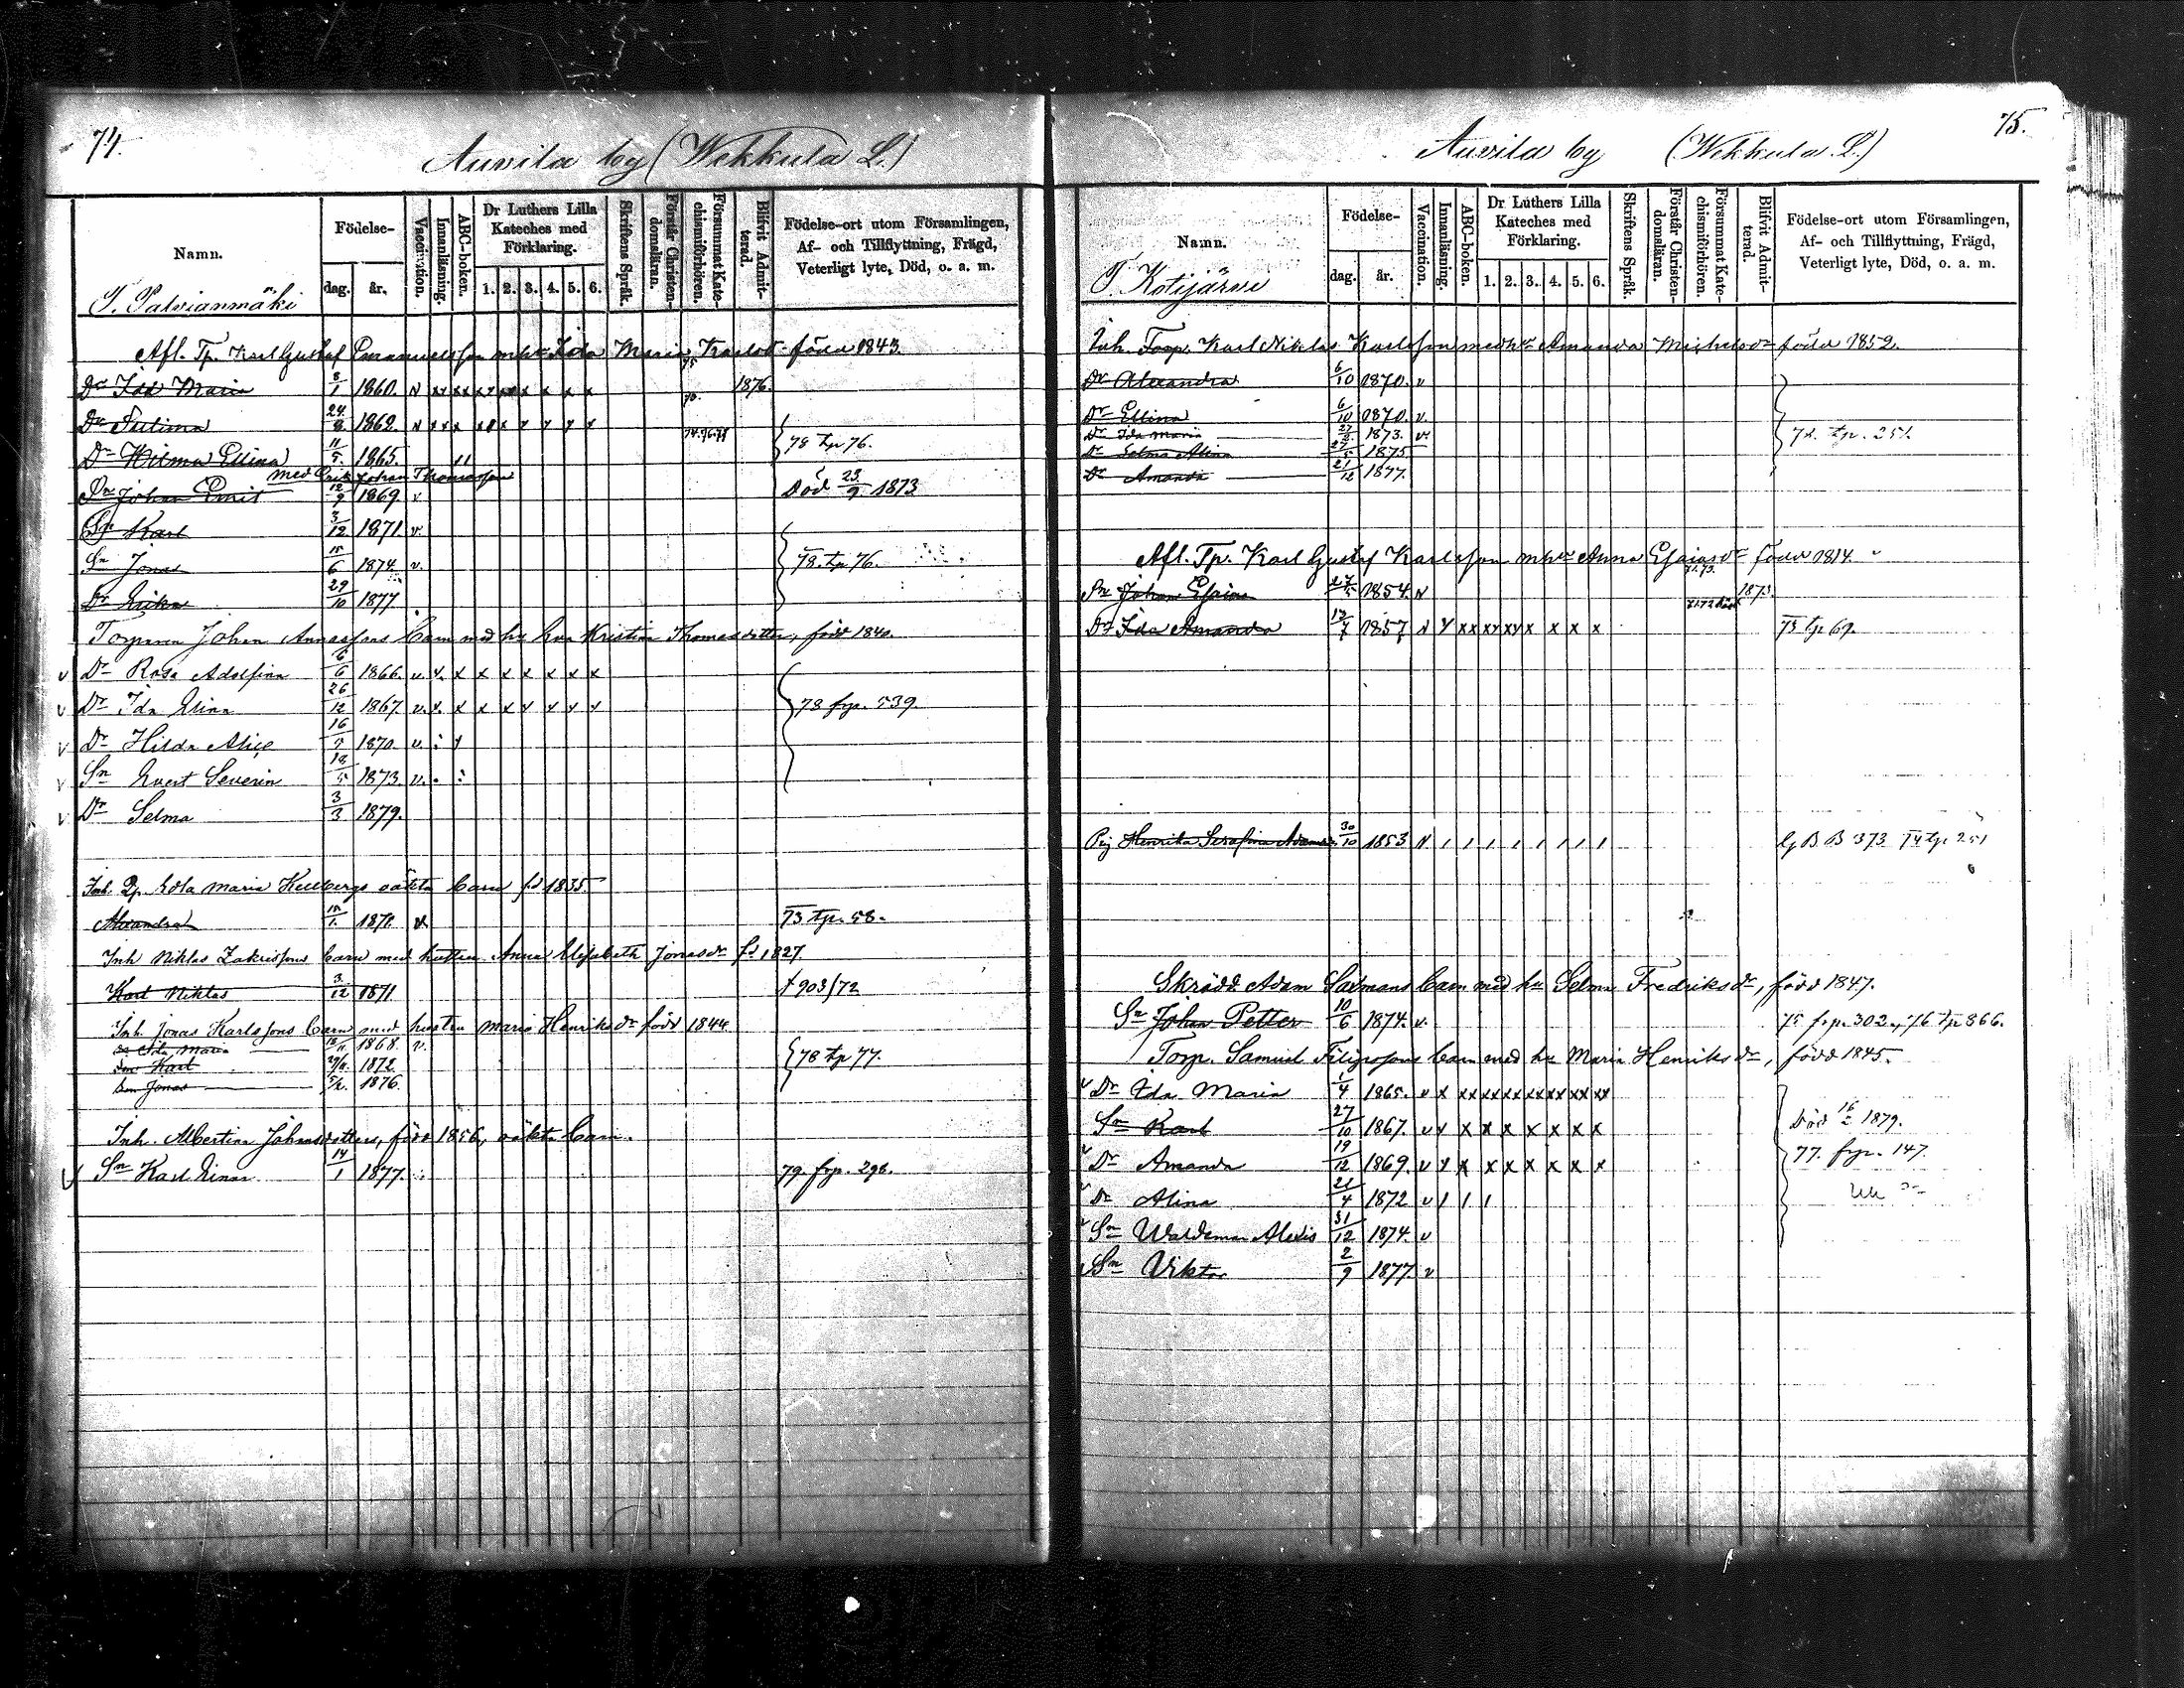 74.
Auvila by (Wekkula L.)
Namn.
Födelse-
dag.
år.
Vaccination.
Innanläsning.
ABC-boken.
Dr Luthers Lilla Kateches med Förklaring.
1. 2. 3. 4. 5. 6.
Skriftens Språk.
Förstår Christendomsläran.
Försummat Katechismiförhören.
Blifvit Admitterad.
Födelse-ort utom Församlingen, Af- och Tillflyttning, Frägd, Veterligt lyte, Död, o. a. m.
T. Palvianmäki
Afl. Tp. Karl Gustaf Emanuelsson mhu Maria Karlsdr född 1843.
Dr Ida Maria 3/1 1860. 1876.
Dr 24/8 1862. 74.76.78
Dr Wilma Ellina 11/5 1865. 78 tp 76.
med Erik Johan Thomasson
Sn Johan Emil 12/9 1869 v Död 23/9 1873
Sn Karl 3/12 1871. v.
Sn Jonas 15/6 1874 v. 78. tp 76.
Dr Erika 29/10 1877
Torparen Johan Annassons barn med hu Eva Kristina Thomasdotter, född 1840.
v Dr Rosa Adolfina 6/6 1866. v. v. x x x x x x x
v Dr Ida Elina 26/12 1867. v. v. x x x x x x x 78 frp. 539.
v Dr Hilda Alice 16/9 1870. v.
v Sn Evert Severin 18/5 1873. v.
v Dr Selma 3/3 1879.
Inh. Maria oäkta barn fd 1835
Alexandra 73 tp. 58.
Inh Niklas Zakrissons barn med hustru Anna Elisabeth Jonasdr fd 1827.
Karl Niklas 3/12 1871. † 903/72
Inh. Jonas Karlssons barn med hustru Maria Henriksdr född 1844
Dr Ida Maria 1868. v.
Son Karl 29/11. 1872. 78 tp 77.
Son Jonas 5/2. 1876.
Inh. Albertina Johansdotters, född 1856, oäkta barn.
v Sn Karl Einar 14/1 1877. 79. frp. 298.
75.
Auvila by (Wekkula L.)
Namn.
Födelse-
dag.
år.
Vaccination.
Innanläsning.
ABC-boken.
Dr Luthers Lilla Kateches med Förklaring.
1. 2. 3. 4. 5. 6.
Skriftens Språk.
Förstår Christendomsläran.
Försummat Katechismiförhören.
Blifvit Admitterad.
Födelse-ort utom Församlingen, Af- och Tillflyttning, Frägd, Veterligt lyte, Död, o. a. m.
T. Kotijärvi
Inh. Torp. Karl Niklas Karlsson med hu Amanda Michelsdr född 1852.
Dr Alexandra 6/10 1870. v
Dr Ellina 6/10 1870. v.
Dr Ida Maria 1873. v. 78. tp. 251.
Dr Selma Alina 1875
Dr Amanda 21/12 1877.
Afl. Tp. Karl Gustaf Karlsson mhu Anna Esaiasdr född 1814.
Sn Johan Esaias 27/5 1854. 1873.
Dr Ida Amanda 1857 73 tp 69.
Pig Henrika Serafina 30/10 1853 B B 373 74 tp 251
Skrädd Adam Saxmans barn med hu Selma Fredriksdr, född 1847.
Sn Johan Petter 10/6 1874. v. 75 frp. 302., 76 tp 866.
Torp. Samuel Filipssons barn med hu Maria Henriksdr, född 1845.
v Dr Ida Maria 1/4 1865. v x xx xx xx xx xx xx xx
Sn Karl 27/10 1867. v v x x x x x x x Död 1879.
v Dr Amanda 19/12 1869. v v x x x x x x x 77. frp. 147.
v Dr Alina 21/4 1872 v
v Sn Waldemar Alexis 31/12 1874. v
v Sn Viktor 2/9 1877 v